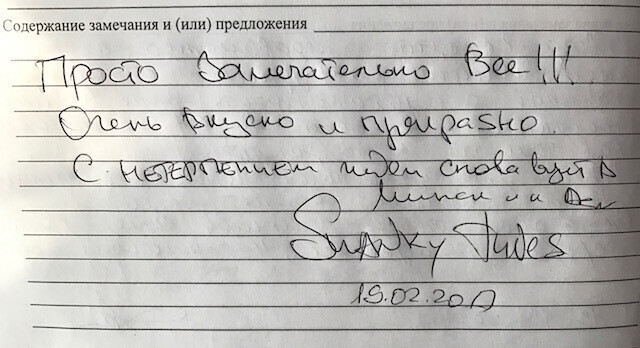 Содержание замечания и (или) предложения
Просто Замечательно Все!!!
Очень вкусно и прекрасно.
С нетерпением ждем снова
Swanky Tunes
19.02.2017